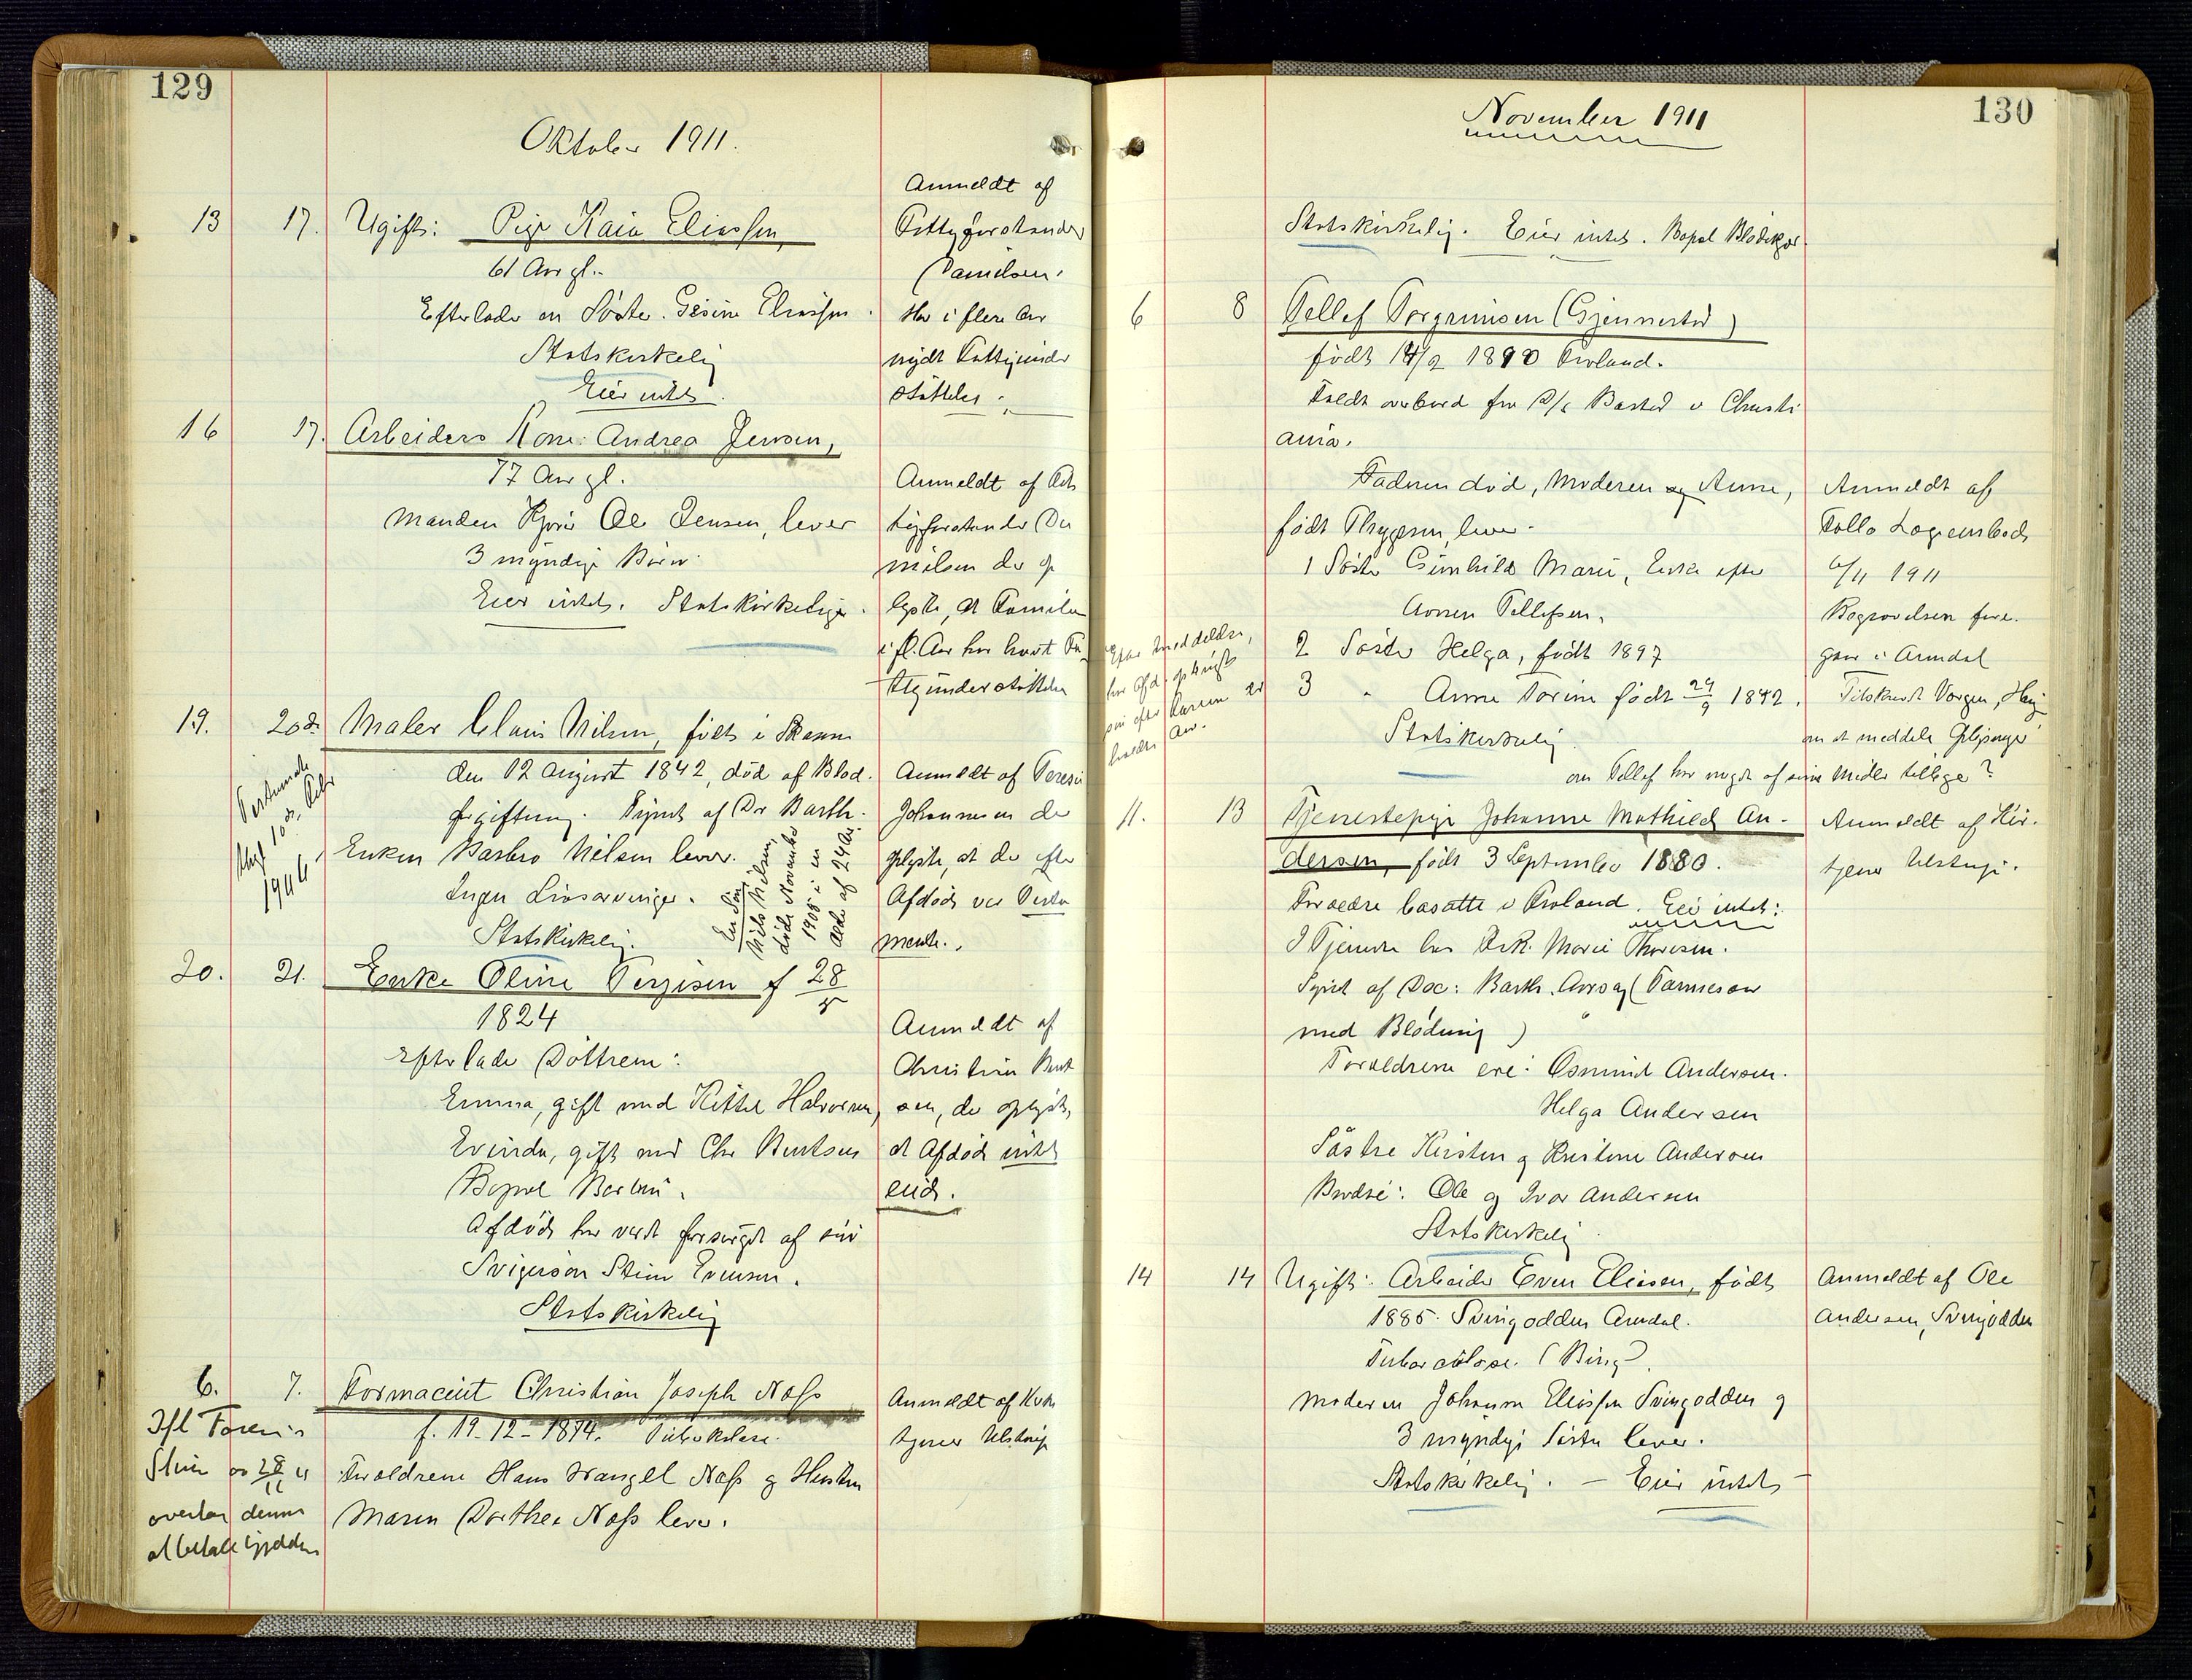 129
Oktober 1911.
13 17. Ugift: Pige Kaia Eliassen,
61 Aar gl.
Efterlader en Søster. Gesine Eliassen.
Statskirkelig
Eier intet.
Anmeldt af
Fattigforstander
Danielsen.
Har i flere Aar
nydt Fattigunder
støttelse.
16 17. Arbeiders Kone: Andrea Jensen,
77 Aar gl.
Manden Ole Jensen, lever
3 myndige Børn.
Eier intet. Statskirkelige.
Anmeldt af Fat
tigforstander Da
nielsen der op
lyste, at Familien
i fl. Aar har havt Fa
ttigunderstøttelse
19. 20de Maler Claus Nilsen, født i
den 12 August 1842, død af Blod.
forgiftning. Synet af Dr Barth.
Enken Barbro Nilsen lever.
Ingen Livsarvinger.
Statskirkelig.
En Søn,
Nils Nilsen,
døde November
1905 i en
Alder af 24 Aar
Testamente
1906
Anmeldt af
Johannesen der
oplyste, at der efter
Afdøde var Testa
mente.
20. 21. Enke Oline Terjesen f 28/5
1824
Efterlader Døttrene:
Emma, gift med Kittel Halvorsen,
Evinda, gift med Chr Berntsen
Bopæl Barbu.
Afdøde har været forsørget af sin
Svigersøn Stian Evensen.
Statskirkelig
Anmeldt af
Christian Bernt
sen, der oplyste,
at Afdøde intet
eied.
6. 7. Farmaceut Christian Joseph Næss
f. 19-12-1874. Tuberkulose.
Forældrene Hans Wrangel Næss og Hustru
Maren Dorthea Næss lever.
overtar denne
at betale Gjælden
Anmeldt af Kirke
tjener Ulstrup
130
November 1911
Statskirkelig. Eier intet. Bopæl Blødekjær.
6 8 Tellef Torgrimsen (Gjennestad)
født 14/9 1890 Froland.
Faldt overbord fra D/S Bastø v Christi
ania.
Faderen død, Moderen Anne,
født Thygesen, lever.
1 Søster Gunhild Marie, Enke efter
Aanen Tellefsen.
2 Søster Helga, født 1897
3 " Anne Torine født 29/9 1892.
Statskirkelig
om Tellef har noget af sine Midler tilbage?
Anmeldt af
6/11 1911
Begravelsen fore.
gaar i Arendal
Tilskrevet Vergen,
om at meddele Oplysninger
Efter Meddelelse,
har Afd.
11. 13 Tjenestepige Johanne Mathilde An-
dersen, født 3 September 1880.
Forældre bosatte i Froland. Eier intet:
I Tjeneste hos Frk. Marie Thorsen.
Synet af Doc: Barth. Aarsag (Tarmesaar
med Blødning)
Forældrene ere: Osmund Andersen.
Helga Andersen
Søstre Kirsten og Kristine Andersen
Brødre: Ole og Ivar Andersen
Statskirkelig
Anmeldt af Kir.
tjener Ulstrup.
14 14 Ugift: Arbeider Even Eliasen, født
1885. Svingodden Arendal.
Tuberculose. (Bing).
Moderen Johanne Eliassen Svingodden og
3 myndige Søstre lever.
Statskirkelig. - Eier intet -
Anmeldt af Ole
Andersen, Svingodden